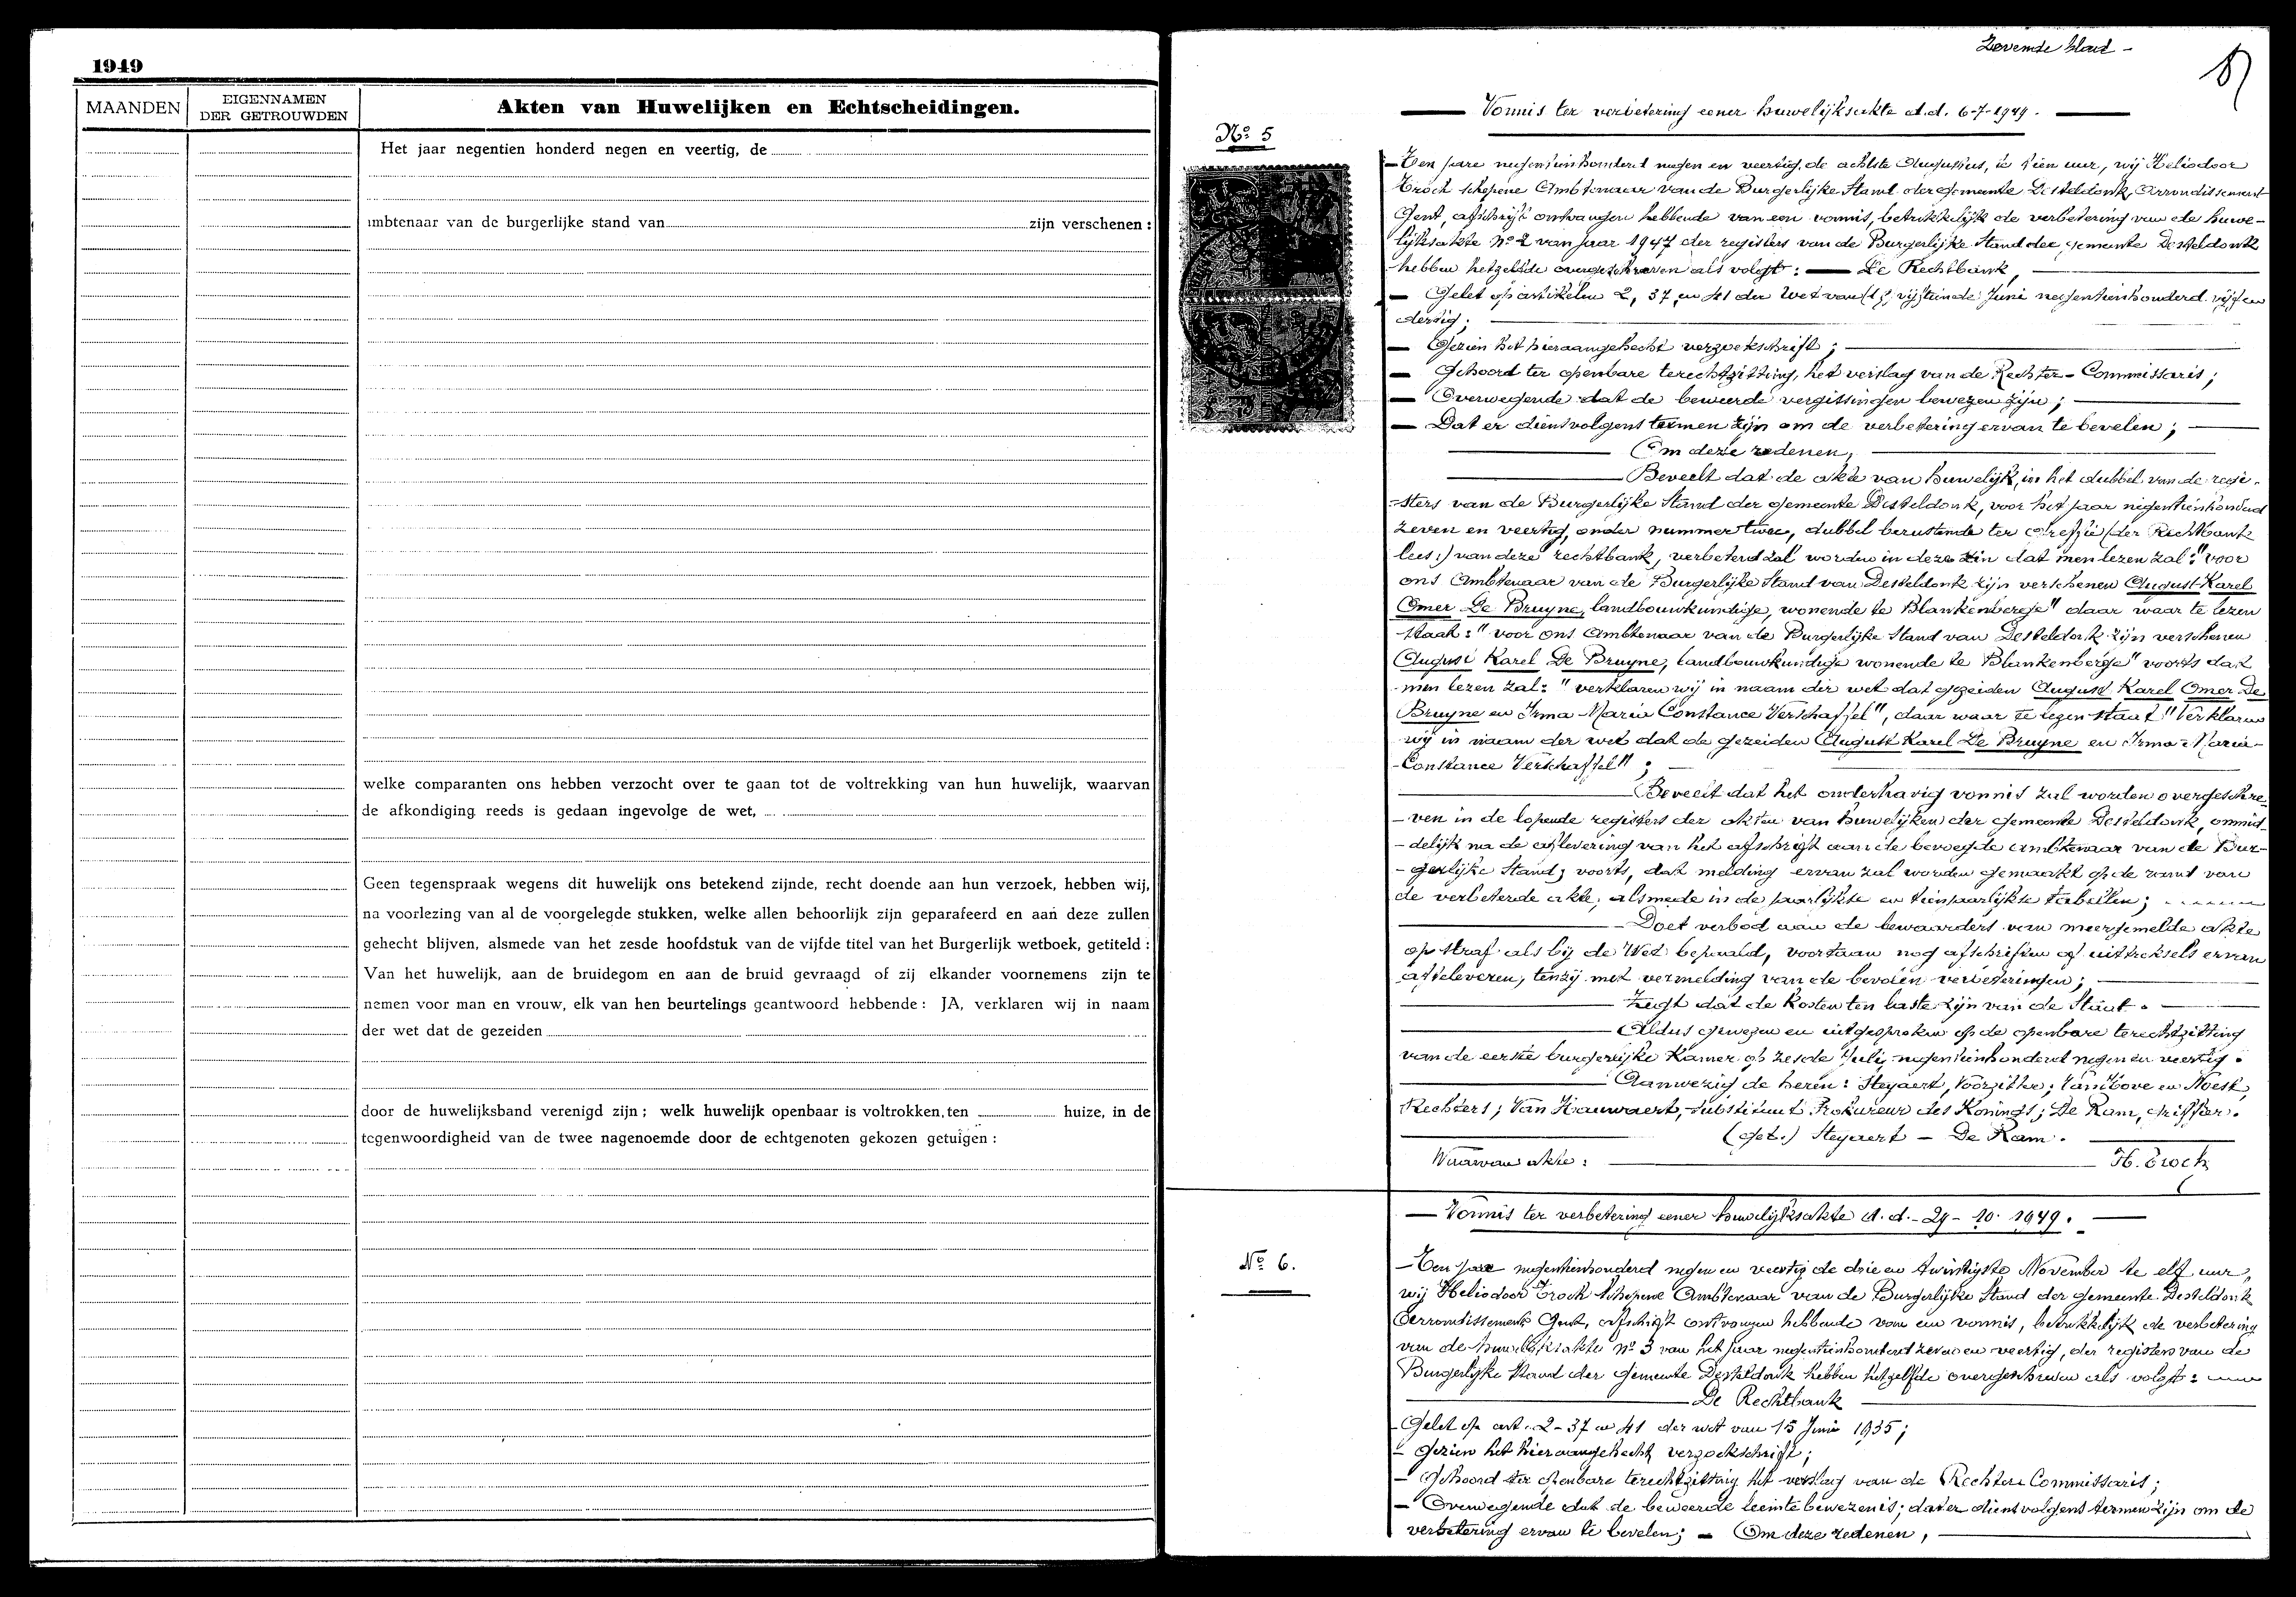 1949
MAANDEN
EIGENNAMEN
DER GETROUWDEN
Akten van Huwelijken en Echtscheidingen.
Het jaar negentien honderd negen en veertig, de
ambtenaar van de burgerlijke stand van zijn verschenen :
welke comparanten ons hebben verzocht over te gaan tot de voltrekking van hun huwelijk, waarvan
de afkondiging reeds is gedaan ingevolge de wet,
Geen tegenspraak wegens dit huwelijk ons betekend zijnde, recht doende aan hun verzoek, hebben wij,
na voorlezing van al de voorgelegde stukken, welke allen behoorlijk zijn geparafeerd en aan deze zullen
gehecht blijven, alsmede van het zesde hoofdstuk van de vijfde titel van het Burgerlijk wetboek, getiteld :
Van het huwelijk, aan de bruidegom en aan de bruid gevraagd of zij elkander voornemens zijn te
nemen voor man en vrouw, elk van hen beurtelings geantwoord hebbende : JA, verklaren wij in naam
der wet dat de gezeiden
door de huwelijksband verenigd zijn ; welk huwelijk openbaar is voltrokken, ten huize, in de
tegenwoordigheid van de twee nagenoemde door de echtgenoten gekozen getuigen :
Zevende blad -
Vonnis ter verbetering eener huwelijksakte d.d. 6-7-1949.
No 5
Ten jare negentienhonderd negen en veertig, de achtste Augustus, te tien uur, wij Heliodoor
Troch schepene Ambtenaar van de Burgerlijke Stand der gemeente Desteldonk, Arrondissement
Gent, afschrift ontvangen hebbende van een vonnis, betrekkelijk de verbetering van de huwe-
lijksakte No 2 van jaar 1947 der registers van de Burgerlijke Stand der gemeente Desteldonk
hebben hetzelfde overgeschreven als volgt : — De Rechtbank,
— Gelet op artikelen 2, 37, en 41 der Wet van vijftiende Juni negentienhonderd vijf en
dertig ;
— Gezien het hieraangehecht verzoekschrift ;
— Gehoord ter openbare terechtzitting, het verslag van de Rechter-Commissaris ;
— Overwegende dat de beweerde vergissingen bewezen zijn ;
— Dat er dienvolgens termen zijn om de verbetering ervan te bevelen ;
Om deze redenen,
Beveelt dat de akte van huwelijk, in het dubbel van de regi-
-sters van de Burgerlijke Stand der gemeente Desteldonk, voor het jaar negentienhonderd
zeven en veertig, onder nummer twee, dubbel berustende ter greffie (der Rechtbank
lees:) van deze rechtbank, verbeterd zal worden in deze zin dat men lezen zal : "voor
ons Ambtenaar van de Burgerlijke Stand van Desteldonk zijn verschenen August Karel
Omer De Bruyne, landbouwkundige, wonende te Blankenberge" daar waar te lezen
staat : "voor ons Ambtenaar van de Burgerlijke Stand van Desteldonk zijn verschenen
August Karel De Bruyne, landbouwkundige wonende te Blankenberge" voorts dat
men lezen zal : "verklaren wij in naam der wet dat gezeiden August Karel Omer De
Bruyne en Irma Maria Constance Verschaffel", daar waar te lezen staat "Verklaren
wij in naam der wet dat de gezeiden August Karel De Bruyne en Irma-Maria-
Constance Verschaffel" ;
Beveelt dat het onderhavig vonnis zal worden overgeschre-
-ven in de lopende registers der akten van huwelijken der gemeente Desteldonk, onmid-
-delijk na de aflevering van het afschrift aan de bevoegde ambtenaar van de Bur-
-gerlijke Stand ; voorts, dat melding ervan zal worden gemaakt op de rand van
de verbeterde akte, alsmede in de jaarlijkse en tienjaarlijkse tabellen ;
Doet verbod aan de bewaarders van meergemelde akte
op straf als bij de Wet bepaald, voortaan nog afschriften of uittreksels ervan
afteleveren, tenzij met vermelding van de bevolen verbeteringen ;
Zegt dat de kosten ten laste zijn van de Staat.
Aldus gewezen en uitgesproken op de openbare terechtzitting
van de eerste burgerlijke Kamer op zesde Juli negentienhonderd negen en veertig.
Aanwezig de heren : Steyaert, Voorzitter ; Van Hove en Noest,
Rechters ; Van Hauwaert, substituut Prokureur des Konings ; De Ram, griffier.
(get.) Steyaert - De Ram.
Waarvan akte : H. Troch
— Vonnis ter verbetering eener huwelijksakte d.d. - 29 - 10 - 1949. —
No 6.
— Ten jare negentienhonderd negen en veertig de drie en twintigste November te elf uur,
wij Heliodoor Troch Schepene Ambtenaar van de Burgerlijke Stand der gemeente Desteldonk
Arrondissement Gent, afschrift ontvangen hebbende van een vonnis, betrekkelijk de verbetering
van de huwelijksakte No 3 van het jaar negentienhonderd zeven en veertig, der registers van de
Burgerlijke Stand der gemeente Desteldonk hebben hetzelfde overgeschreven als volgt :
De Rechtbank
- Gelet op art. 2 - 37 en 41 der wet van 15 Juni 1935 ;
- Gezien het hieraangehecht verzoekschrift ;
- Gehoord ter openbare terechtzitting het verslag van de Rechter Commissaris ;
- Overwegende dat de beweerde leemte bewezen is ; dat er dienvolgens termen zijn om de
verbetering ervan te bevelen ; — Om deze redenen,